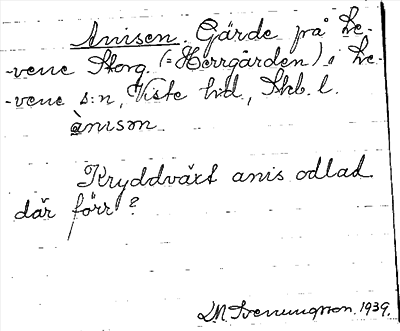 Anisen. Gärde på Le-
-vene Storg. (=Herrgården), i Le-
-vene s:n, Viste hd, Skb. l.
ànisɘn
Kryddväxt anis odlad
där förr?
D.N. Svenungsson. 1939.